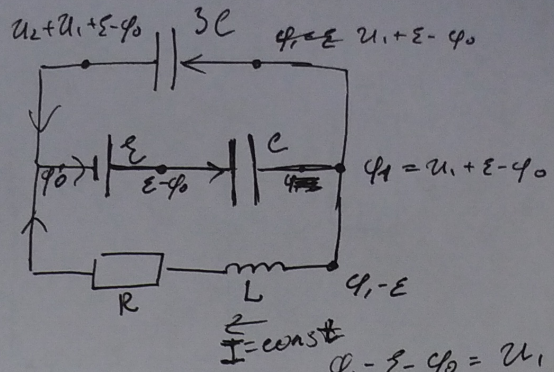 u₂+u₁+ε-φ₀ 3C u₁+ε-φ₀
ε C
φ₀ ε-φ₀ φ₁ = u₁+ε-φ₀
R L φ₁-ε
I=const
φ₁-ε-φ₀ = u₁